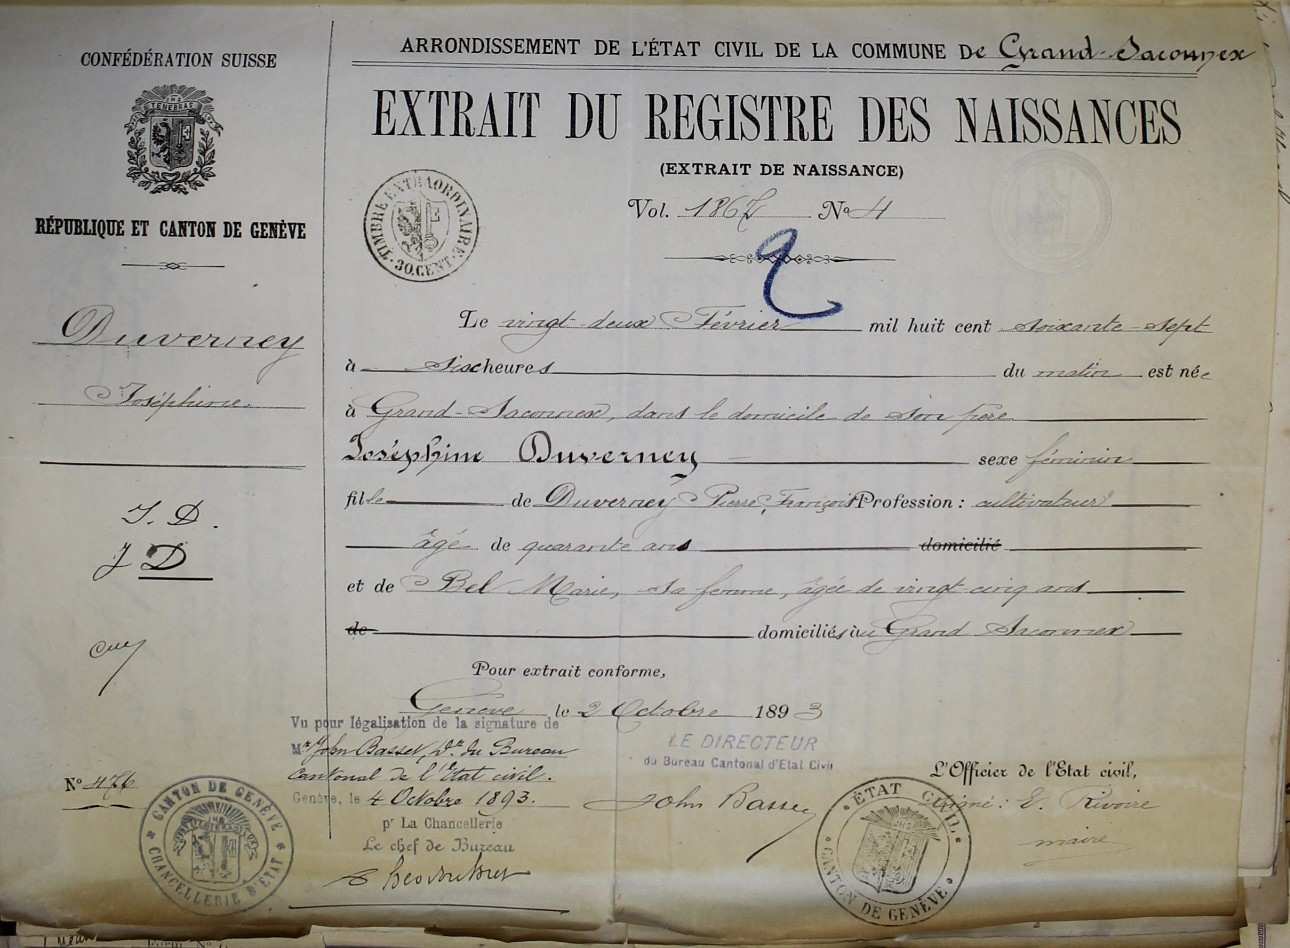 ARRONDISSEMENT DE L'ÉTAT CIVIL DE LA COMMUNE De Grand-Saconnex
CONFÉDÉRATION SUISSE
EXTRAIT DU REGISTRE DES NAISSANCES
(EXTRAIT DE NAISSANCE)
RÉPUBLIQUE ET CANTON DE GENÈVE
TIMBRE EXTRAORDINAIRE
30 CENT.
Vol. 1867 No 4
2
Duverney
Joséphine
J. D.
J D
Le vingt-deux Février mil huit cent soixante-sept
à six heures du matin est née
à Grand-Saconnex, dans le domicile de son père
Joséphine Duverney sexe féminin
fille de Duverney Pierre François Profession : cultivateur
âgé de quarante ans domicilié
et de Bel Marie, sa femme, âgée de vingt cinq ans
de domiciliés au Grand Saconnex
Pour extrait conforme,
Genève le 2 Octobre 1893
Vu pour légalisation de la signature de
Mr John Basset, Dr. du Bureau
Cantonal de l'Etat civil.
Genève, le 4 Octobre 1893.
pr La Chancellerie
Le chef de Bureau
LE DIRECTEUR
du Bureau Cantonal d'Etat Civil
John Basset
L'Officier de l'Etat civil,
Signé : E. Rivoire
maire
No 476
CANTON DE GENÈVE
CHANCELLERIE D'ÉTAT
ÉTAT CIVIL
CANTON DE GENÈVE